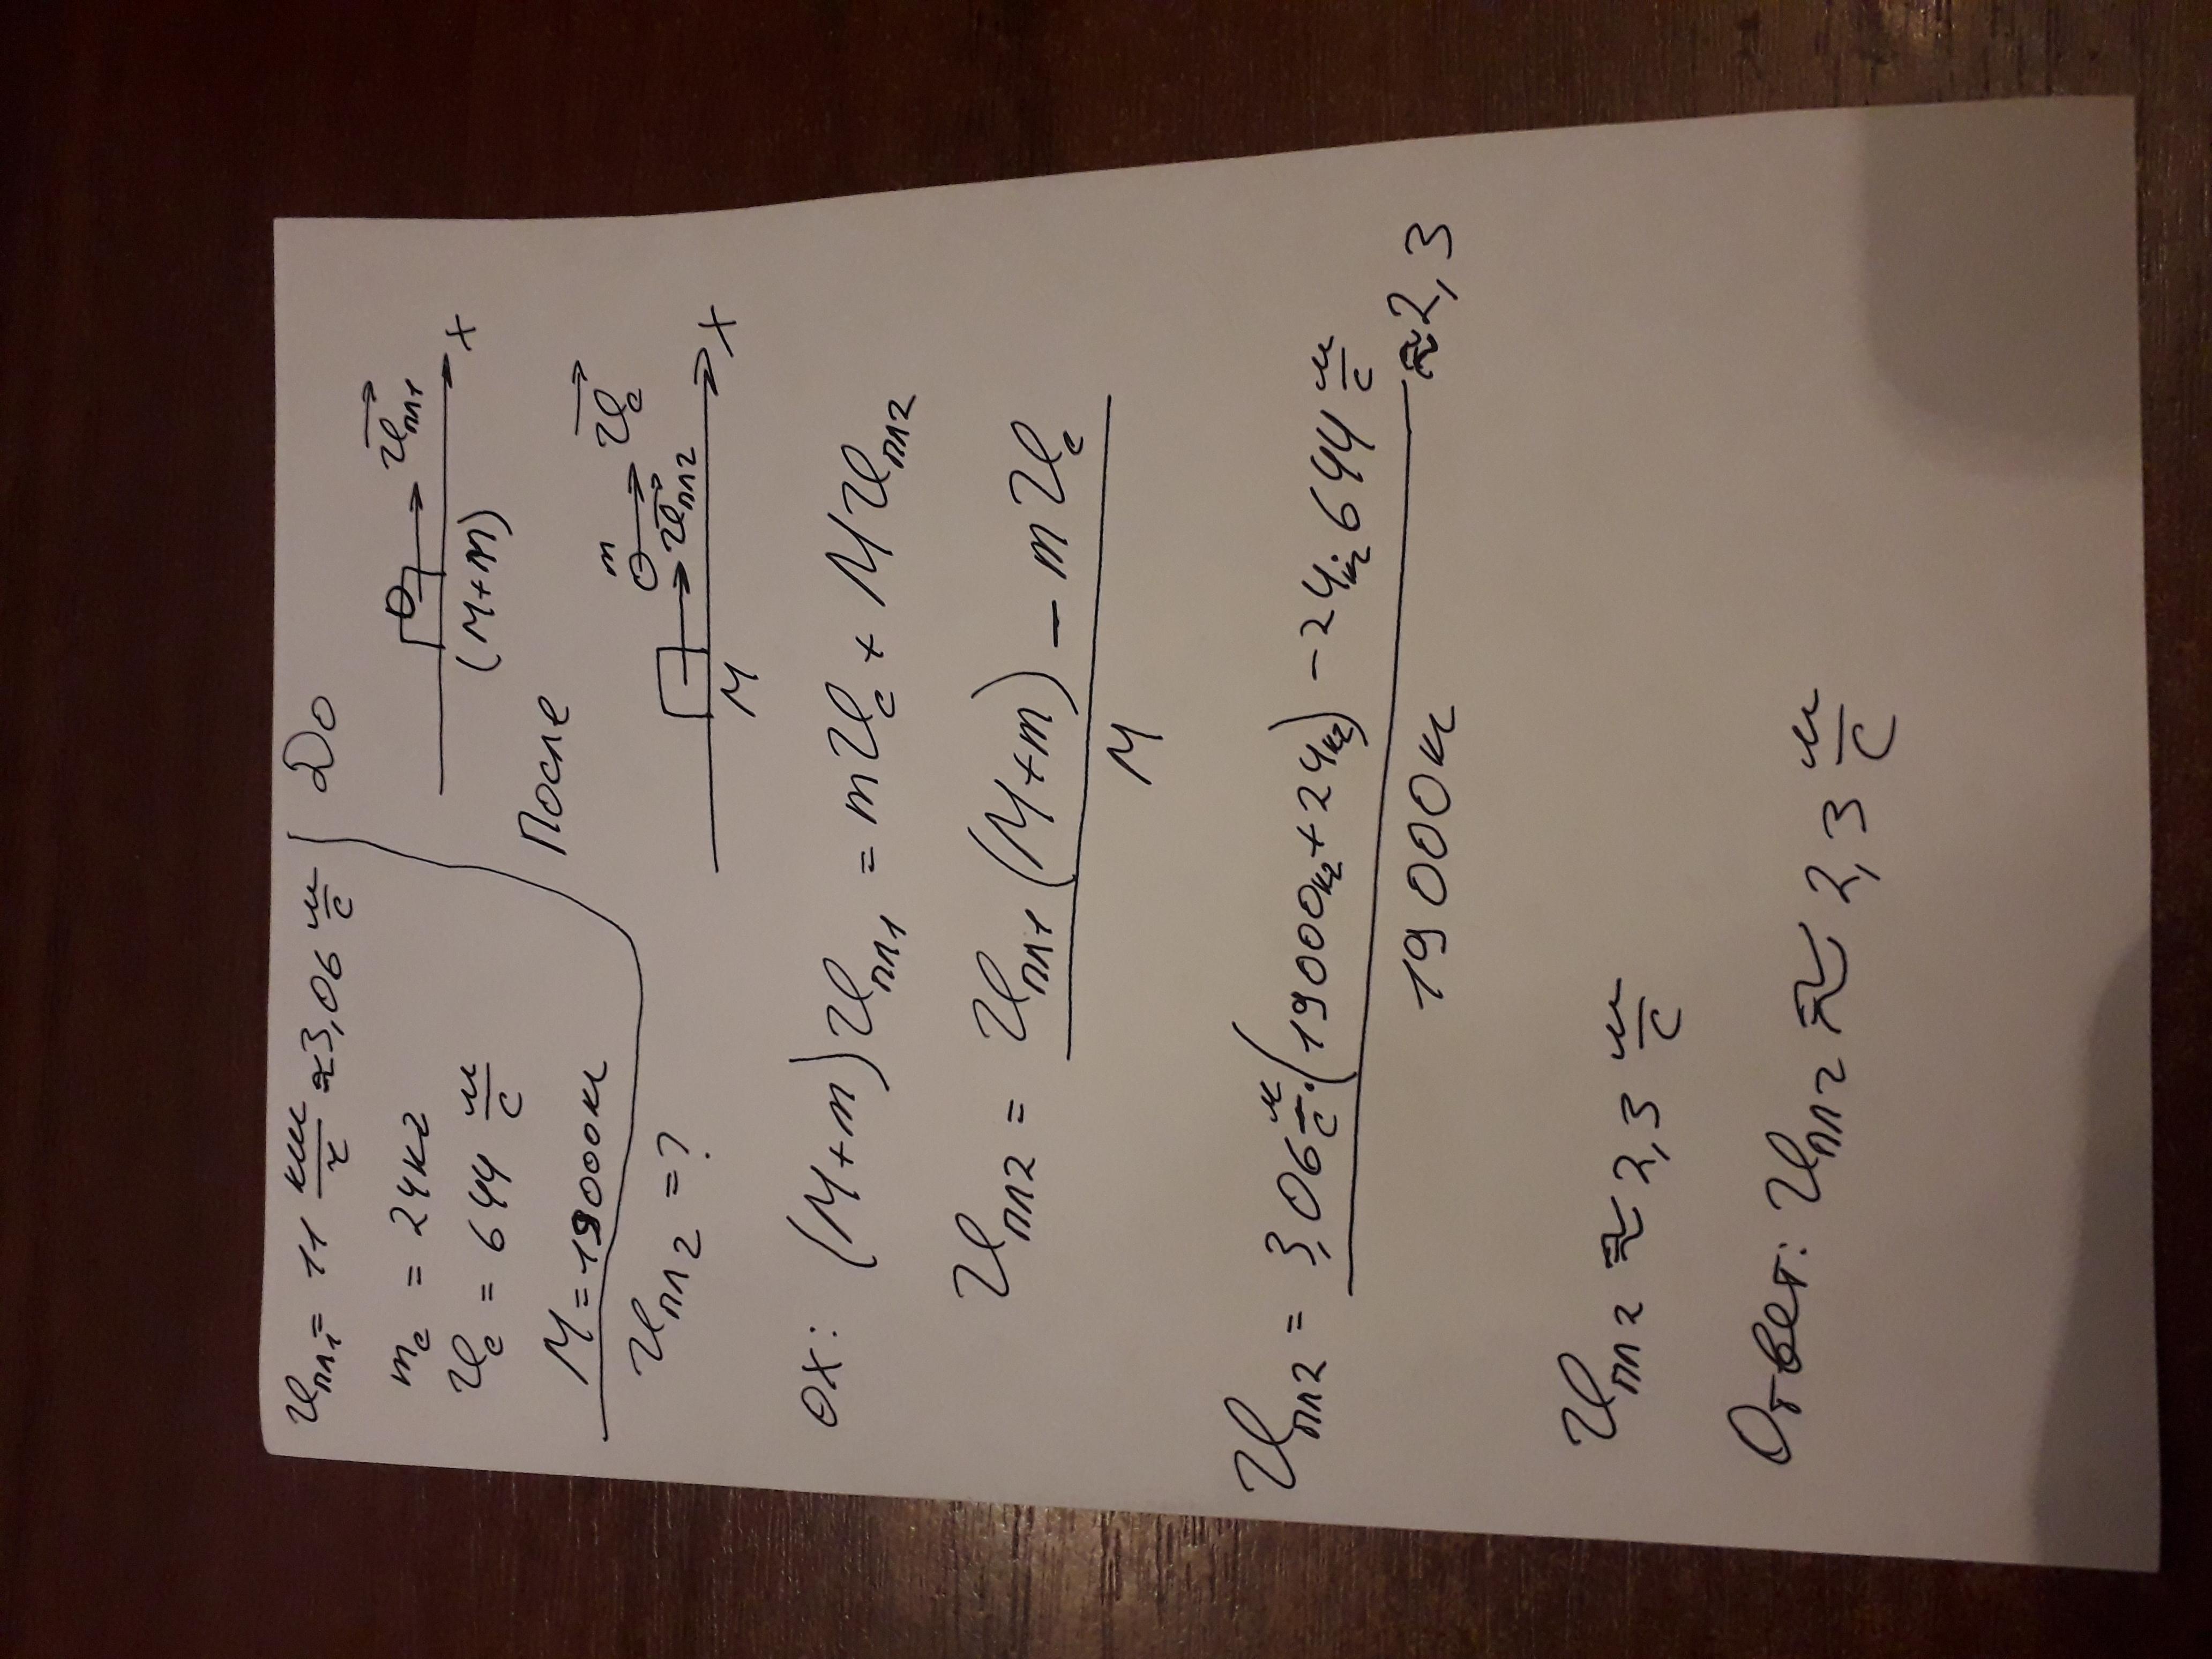 υпл1 = 11 км/ч ≈ 3,06 м/с
mс = 24кг
υс = 644 м/с
M = 19000кг
υпл2 = ?
До
υпл1
(M+m)
x
После
m
υс
υпл2
M
x
ox: (M+m)υпл1 = mυс + Mυпл2
υпл2 = (υпл1(M+m) - mυс) / M
υпл2 = (3,06 м/с · (19000кг + 24кг) - 24кг · 644 м/с) / 19000кг ≈ 2,3
υпл2 ≈ 2,3 м/с
Ответ: υпл2 ≈ 2,3 м/с